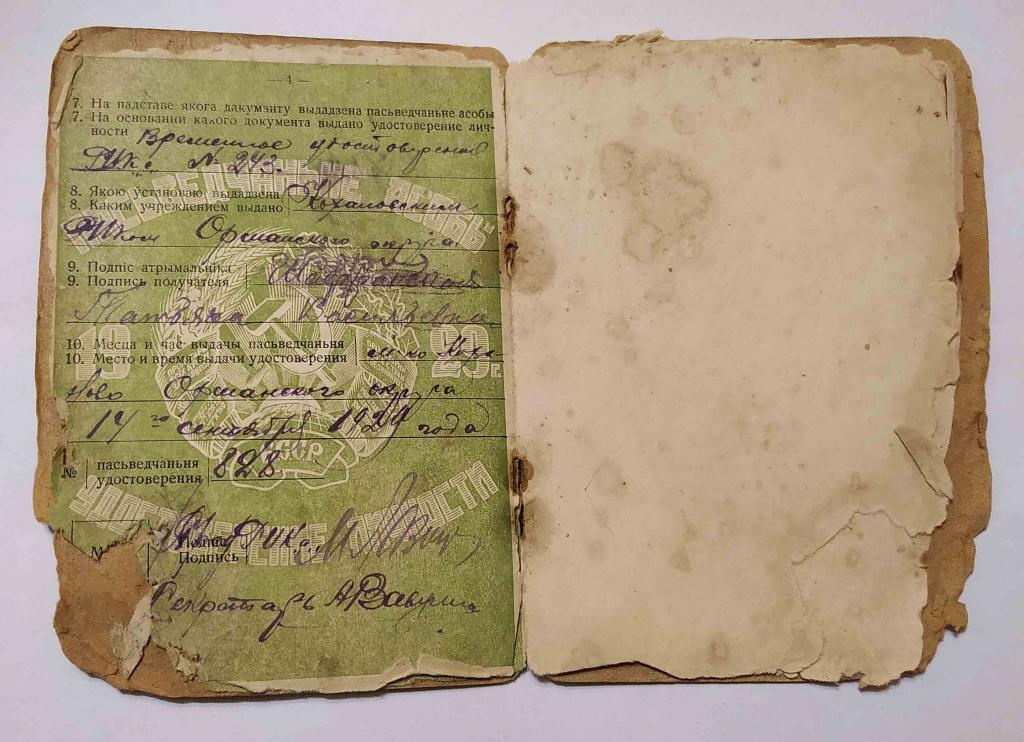 — 4 —
7. На падставе якога дакумэнту выдадзена пасьведчаньне асобы
7. На основании какого документа выдано удостоверение лич-
ности Временное удостоверение
РИКа № 243.
8. Якою установаю выдадзена
8. Каким учреждением выдано Кохановским
РИКом Оршанского округа
9. Подпіс атрымальніка
9. Подпись получателя
Татьяна Васильевна
10. Месца и час выдачы пасьведчаньня
10. Место и время выдачи удостоверения м-ко Коха
ново Оршанского округа
14 го сентября 1929 года
№ пасьведчаньня
удостоверения 828
РИКа
Подпись
Секретарь
ПАСЬВЕДЧАНЬНЕ АСОБЫ
19 29 г.
БССР
УДОСТОВЕРЕНИЕ ЛИЧНОСТИ